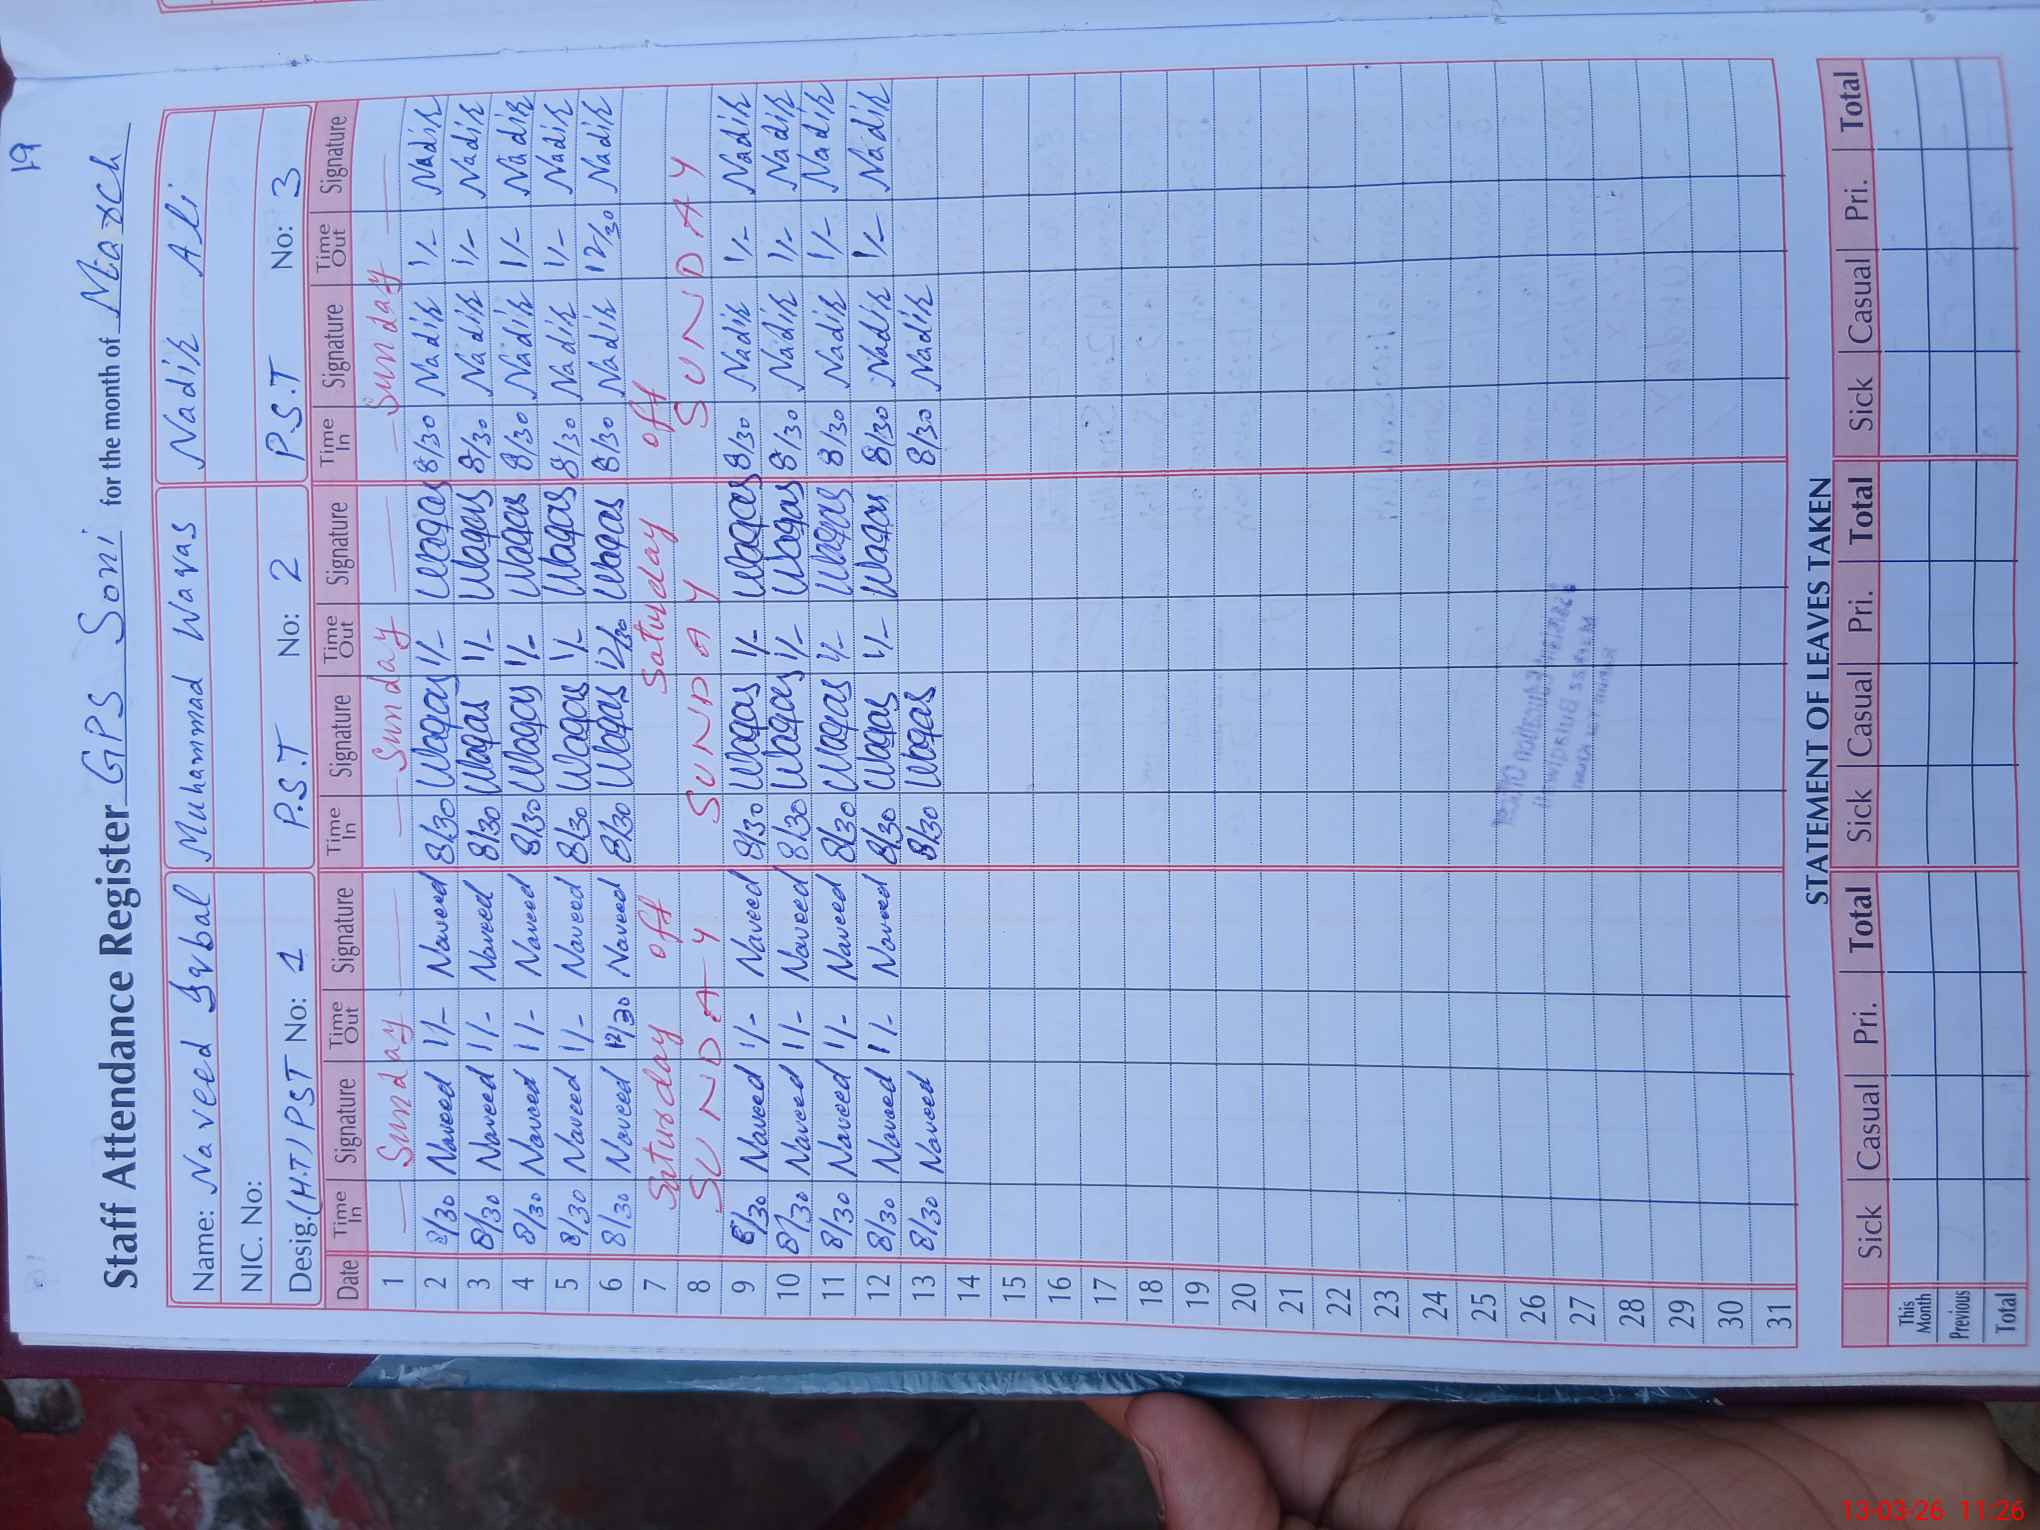 19
Staff Attendance Register GPS Soni for the month of March
Name: Naveed Iqbal Muhammad Waqas Nadir Ali
NIC. No:
Desig. (H.T) PST No: 1 P.S.T No: 2 P.S.T No: 3
Date Time In Signature Time Out Signature Time In Signature Time Out Signature Time In Signature Time Out Signature
1 Sunday Sunday Sunday
2 8/30 Naveed 1/- Naveed 8/30 Waqas 1/- Waqas 8/30 Nadir 1/- Nadir
3 8/30 Naveed 1/- Naveed 8/30 Waqas 1/- Waqas 8/30 Nadir 1/- Nadir
4 8/30 Naveed 1/- Naveed 8/30 Waqas 1/- Waqas 8/30 Nadir 1/- Nadir
5 8/30 Naveed 1/- Naveed 8/30 Waqas 1/- Waqas 8/30 Nadir 1/- Nadir
6 8/30 Naveed 12/30 Naveed 8/30 Waqas 12/30 Waqas 8/30 Nadir 12/30 Nadir
7 Saturday off Saturday off
8 SUNDAY SUNDAY SUNDAY
9 8/30 Naveed 1/- Naveed 8/30 Waqas 1/- Waqas 8/30 Nadir 1/- Nadir
10 8/30 Naveed 1/- Naveed 8/30 Waqas 1/- Waqas 8/30 Nadir 1/- Nadir
11 8/30 Naveed 1/- Naveed 8/30 Waqas 1/- Waqas 8/30 Nadir 1/- Nadir
12 8/30 Naveed 1/- Naveed 8/30 Waqas 1/- Waqas 8/30 Nadir 1/- Nadir
13 8/30 Naveed 8/30 Waqas 8/30 Nadir
14
15
16
17
18
19
20
21
22
23
24
25
26
27
28
29
30
31
STATEMENT OF LEAVES TAKEN
Sick Casual Pri. Total Sick Casual Pri. Total Sick Casual Pri. Total
This Month
Previous
Total
13-03-26 11:26